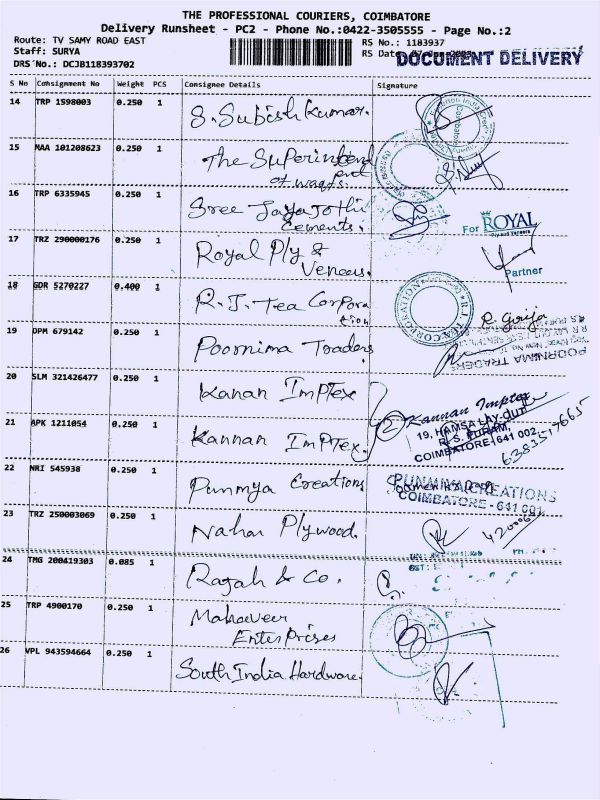 THE PROFESSIONAL COURIERS, COIMBATORE
Delivery Runsheet - PC2 - Phone No.:0422-3505555 - Page No.:2
Route: TV SAMY ROAD EAST
RS No.: 1183937
Staff: SURYA
RS Date
DOCUMENT DELIVERY
DRS No.: DCJB118393702
S No Consignment No Weight PCS Consignee Details Signature
14 TRP 1598003 0.250 1 S. Subish Kumar.
15 MAA 101208623 0.250 1 The Superintend
of waqfs.
16 TRP 6335945 0.250 1 Sree Jaya Jothi
Cements.
For ROYAL
Ply and Veneers
17 TRZ 290000176 0.250 1 Royal Ply &
Veneers.
Partner
18 GDR 5270227 0.400 1 R.J. Tea Corpora
tion
R.J. TEA CORPORATION
R. Girija
19 DPM 679142 0.250 1 Poornima Traders
POORNIMA TRADERS
20 SLM 321426477 0.250 1 Kanan ImPTex
Kannan Imptex
19, HAMSA LAY-OUT
R.S. PURAM,
COIMBATORE-641 002
6383517665
21 APK 1211054 0.250 1 Kannan ImPTex.
22 NRI 545938 0.250 1 Punmya Creations
PUNMIYA CREATIONS
COIMBATORE - 641 001
23 TRZ 250003069 0.250 1 Nahar Plywood.
24 TMG 200419303 0.085 1 Rajah & Co.
25 TRP 4900170 0.250 1 Mahaveer
Enterprises
26 VPL 943594664 0.250 1 South India Hardware.